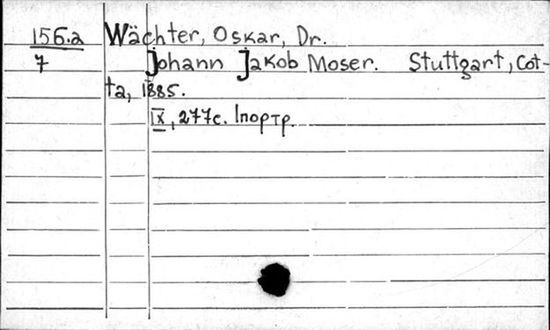 156.a Wächter, Oskar, Dr.
7 Johann Jakob Moser. Stuttgart, Cot-
ta, 1885.
IX, 277c. 1портр.